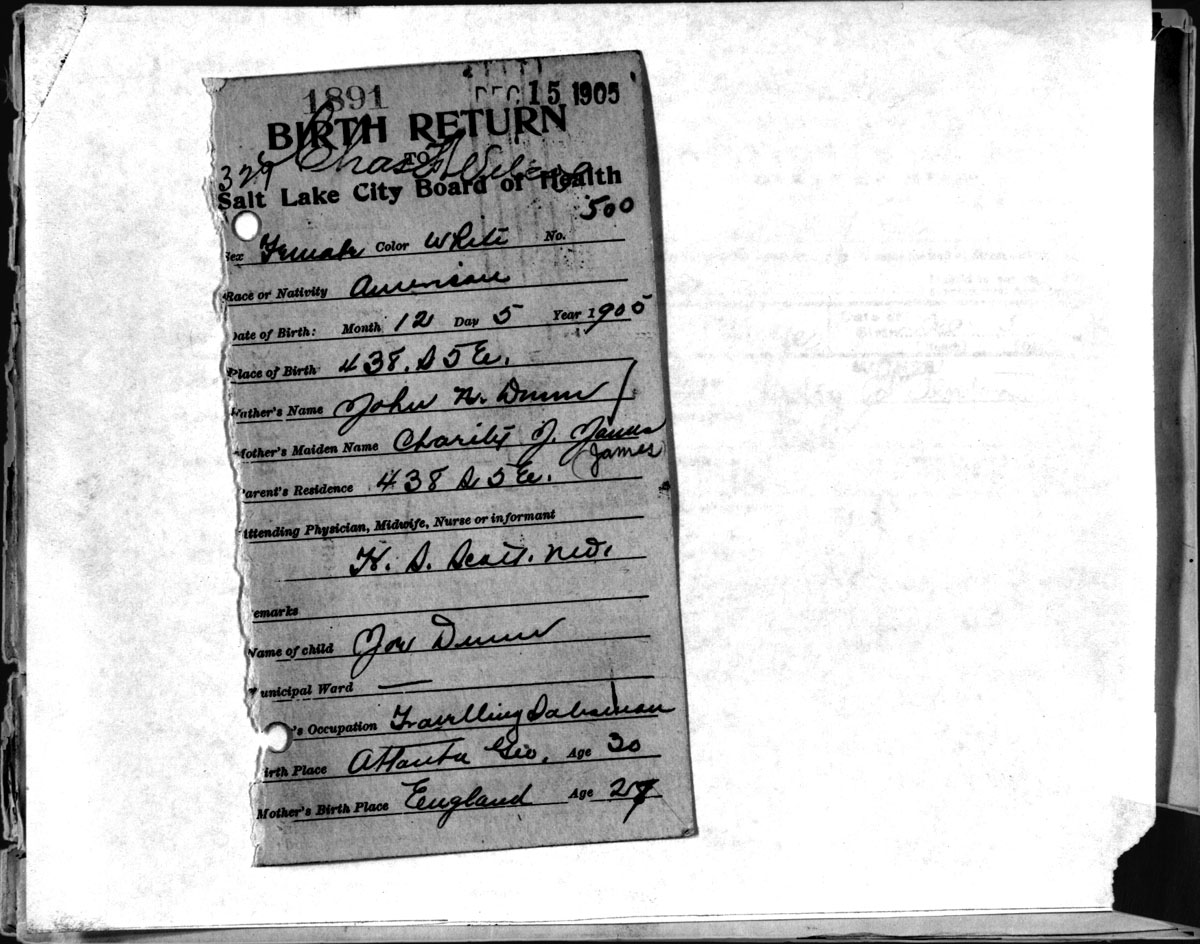 1891 DEC 15 1905
BIRTH RETURN
TO
329 Chas
Salt Lake City Board of Health
500
Sex Female Color White No.
Race or Nativity American
Date of Birth: Month 12 Day 5 Year 1905
Place of Birth 438. S 5 E.
Father's Name John N. Dunn
Mother's Maiden Name Charity J. James
James
Parent's Residence 438 S 5 E.
Attending Physician, Midwife, Nurse or informant
H. S. Scott. M.D.
Remarks
Name of child Joy Dunn
Municipal Ward —
's Occupation Travelling Salesman
Birth Place Atlanta Geo. Age 30
Mother's Birth Place England Age 27